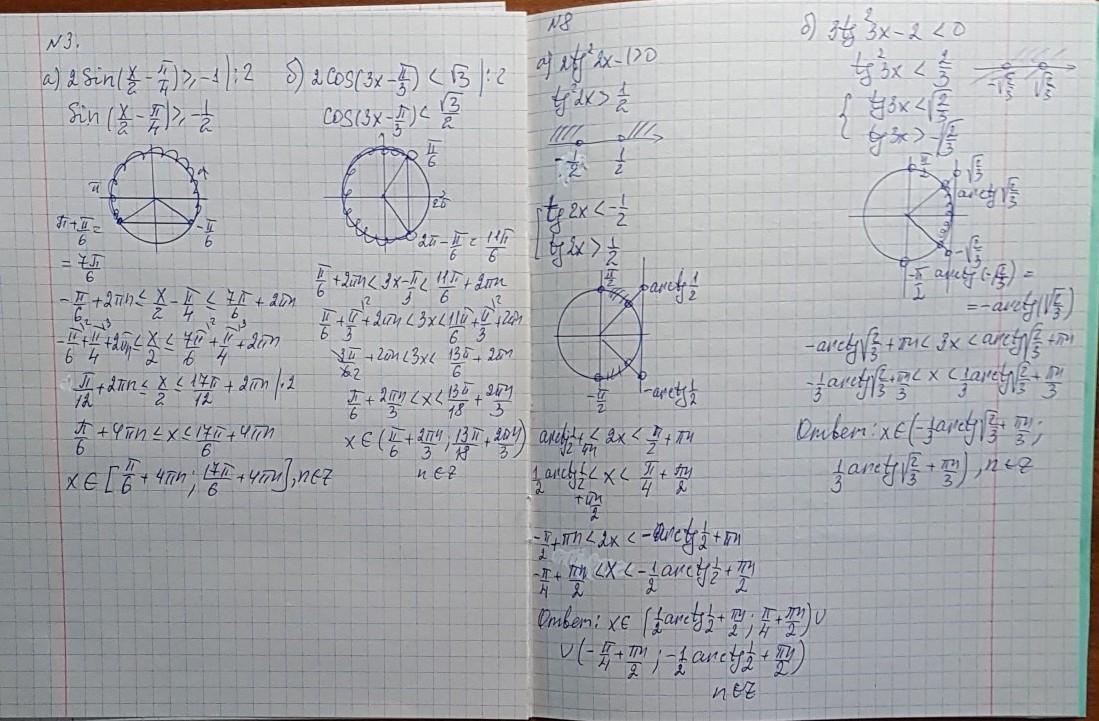 №3.
а) 2Sin(x/2 - π/4) ≥ -1 |:2
Sin(x/2 - π/4) ≥ -1/2
π
π + π/6 =
= 7π/6
-π/6
-π/6 + 2πn ≤ x/2 - π/4 ≤ 7π/6 + 2πn
-π/6 + π/4 + 2πn ≤ x/2 ≤ 7π/6 + π/4 + 2πn
π/12 + 2πn ≤ x/2 ≤ 17π/12 + 2πn |·2
π/6 + 4πn ≤ x ≤ 17π/6 + 4πn
x ∈ [π/6 + 4πn; 17π/6 + 4πn], n∈Z
б) 2cos(3x - π/3) < √3 |:2
cos(3x - π/3) < √3/2
π/6
2π - π/6 = 11π/6
π/6 + 2πn < 3x - π/3 < 11π/6 + 2πn
π/6 + π/3 + 2πn < 3x < 11π/6 + π/3 + 2πn
3π/6 2 + 2πn < 3x < 13π/6 + 2πn
π/6 + 2πn/3 < x < 13π/18 + 2πn/3
x ∈ (π/6 + 2πn/3; 13π/18 + 2πn/3)
n ∈ Z
№8
а) 2tg²2x - 1 > 0
tg²2x > 1/2
-1/2 1/2
[ tg2x < -1/2
tg2x > 1/2
π/2
arctg 1/2
-arctg 1/2
-π/2
arctg 1/2 + πn < 2x < π/2 + πn
1/2 arctg 1/2 + πn/2 < x < π/4 + πn/2
-π/2 + πn < 2x < -arctg 1/2 + πn
-π/4 + πn/2 < x < -1/2 arctg 1/2 + πn/2
Ответ: x ∈ (1/2 arctg 1/2 + πn/2; π/4 + πn/2) ∪
∪ (-π/4 + πn/2; -1/2 arctg 1/2 + πn/2)
n ∈ Z
б) 3tg²3x - 2 < 0
tg²3x < 2/3
-√2/3 √2/3
{ tg3x < √2/3
tg3x > -√2/3
π/2 √2/3
arctg √2/3
-√2/3
-π/2 arctg(-√2/3) =
= -arctg(√2/3)
-arctg √2/3 + πn < 3x < arctg √2/3 + πn
-1/3 arctg √2/3 + πn/3 < x < 1/3 arctg √2/3 + πn/3
Ответ: x ∈ (-1/3 arctg √2/3 + πn/3;
1/3 arctg √2/3 + πn/3), n ∈ Z